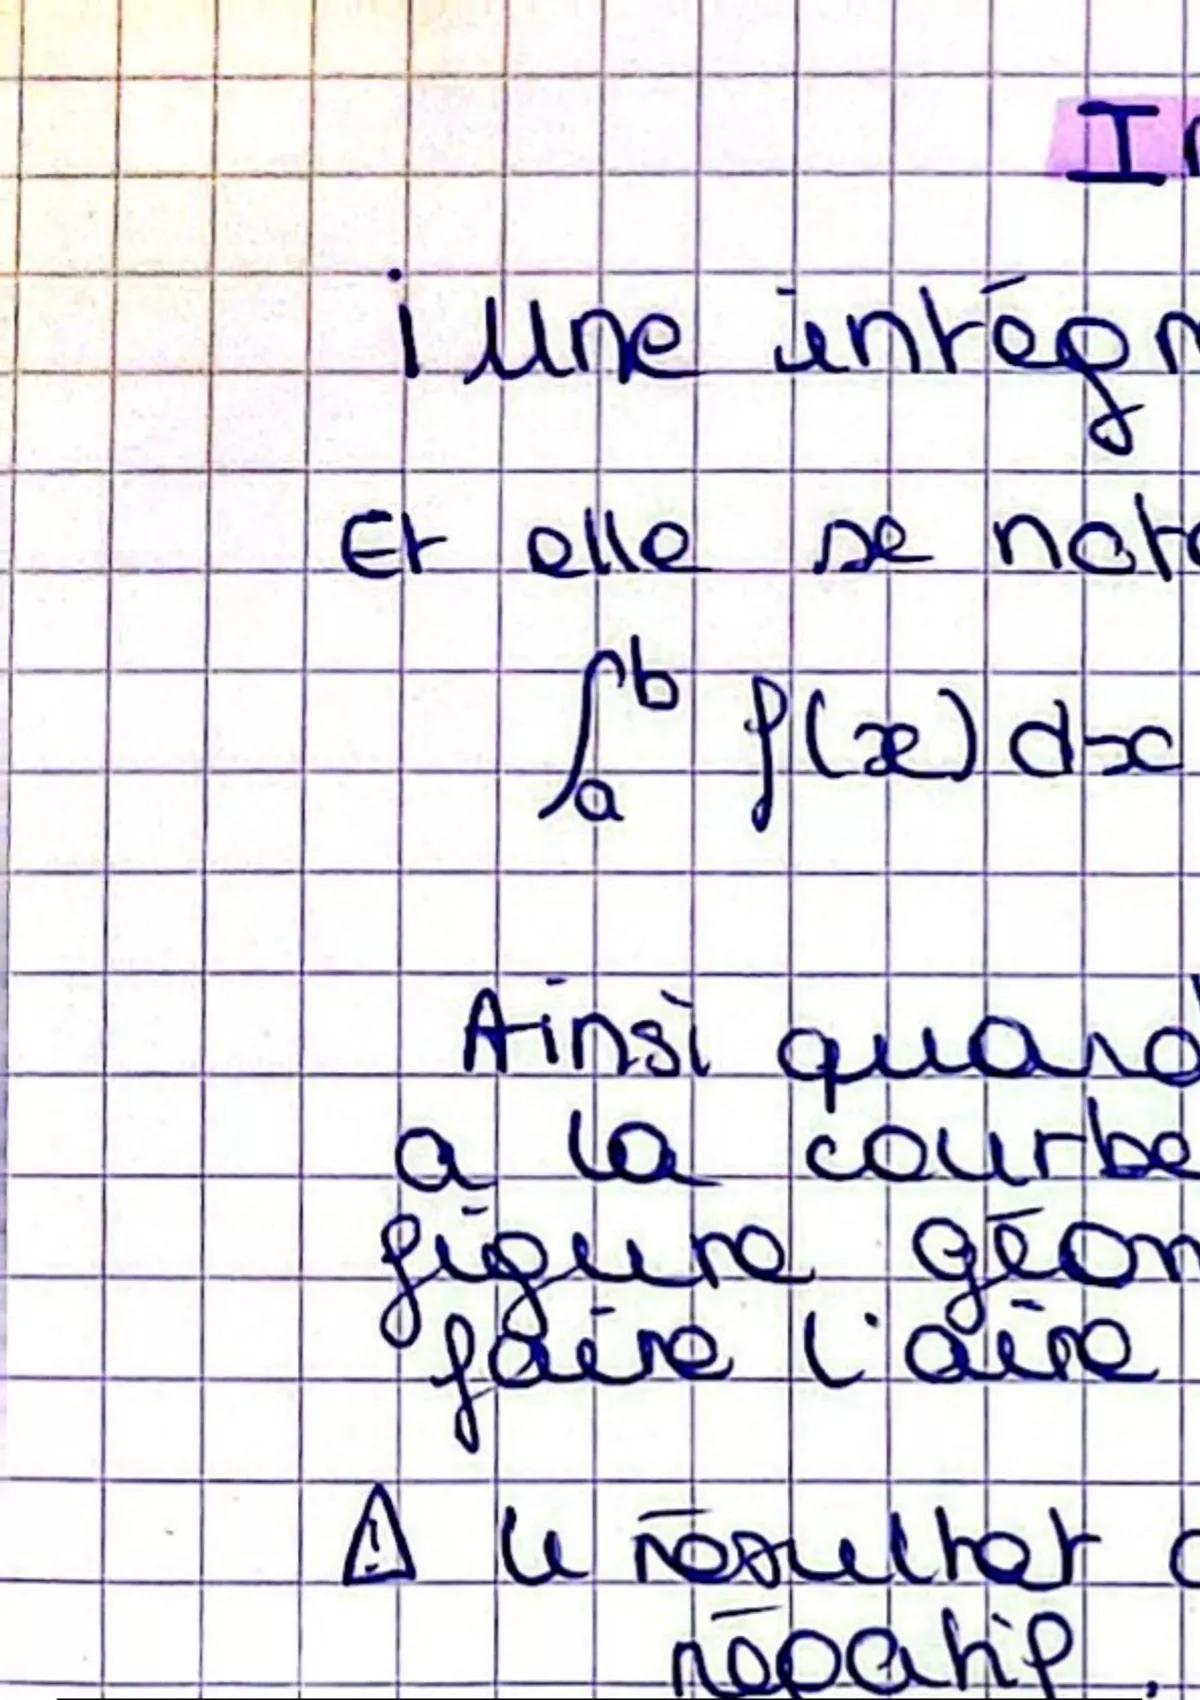 In
i Une intégr
Et elle se note
∫ₐᵇ f(x) dx
Ainsi quand
a la courbe
figure géom
faire l'aire
⚠ le résultat
négatif.